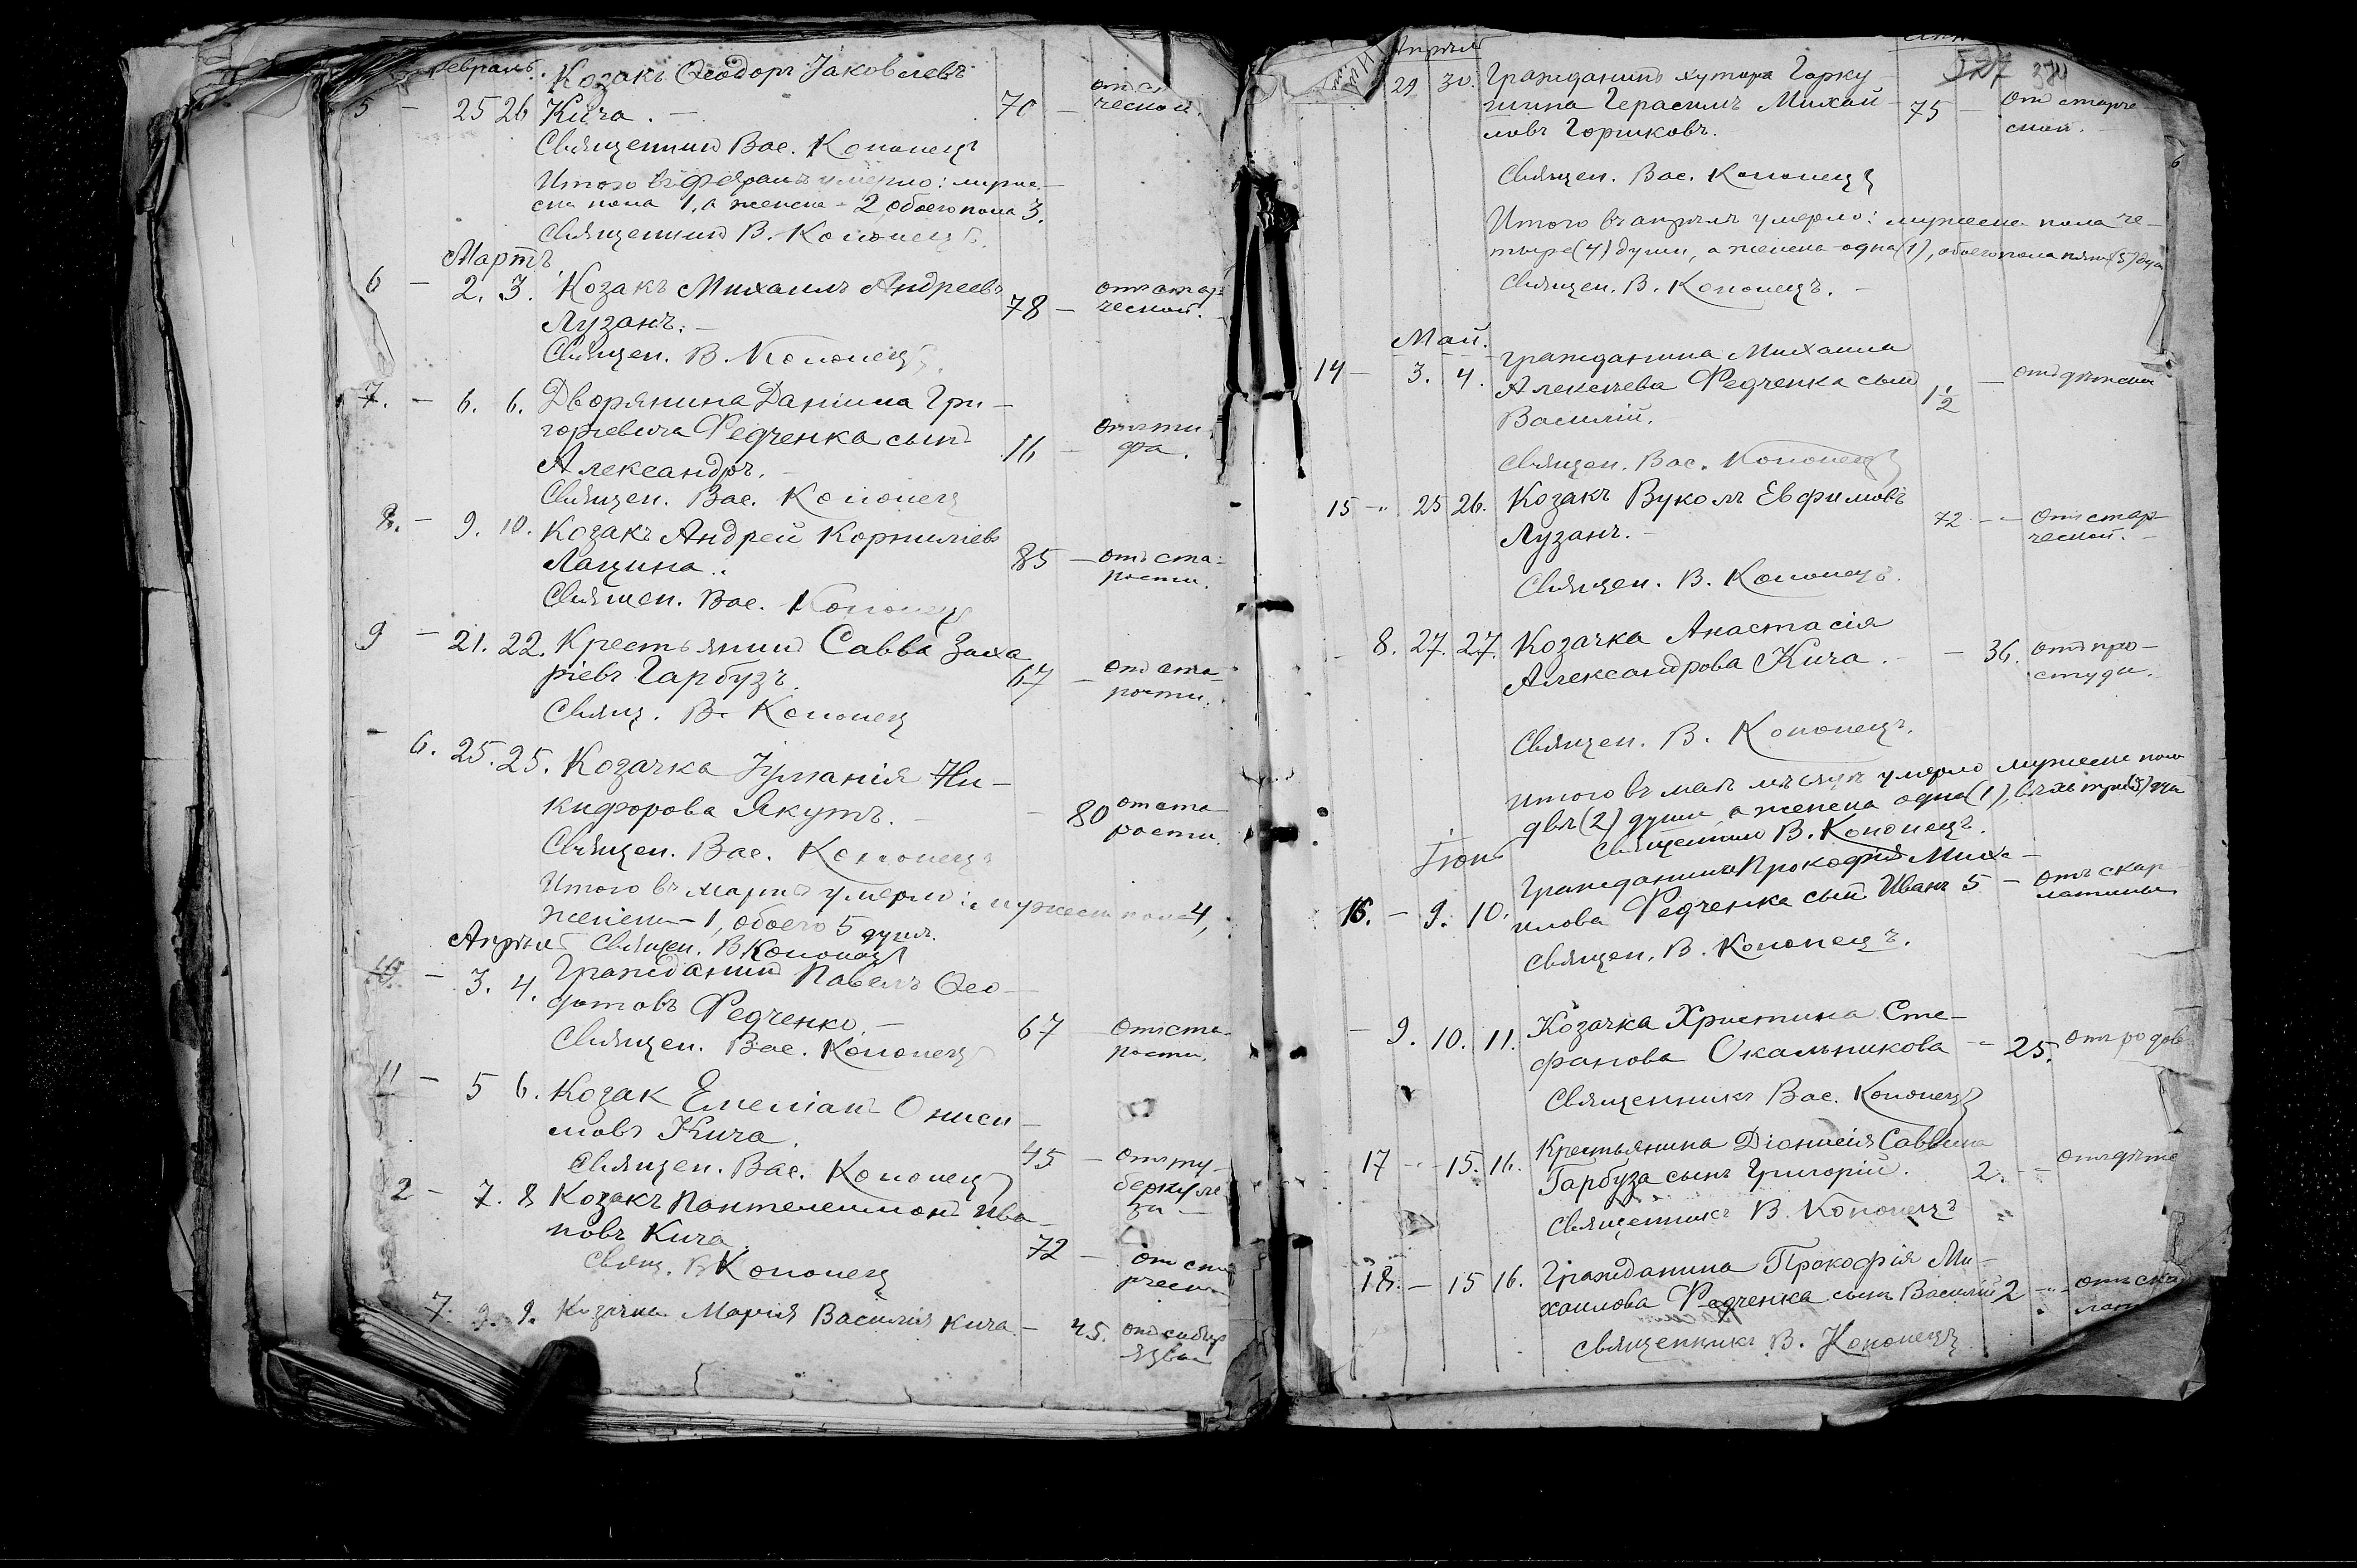 Февраль.
5 - 25 26 Козакъ Ѳеодоръ Іаковлевъ
Кича. - 70 - ческой.
Священник Вас. Кононецъ
Итого въ феврале умерло: мужес-
ска пола 1, а женска - 2 обоего пола 3.
Священник В. Кононецъ.
Мартъ
6 - 2. 3. Козакъ Михаилъ Андреевъ
Лузанъ. - 78 - от стар-
ческой.
Священ. В. Кононецъ.
7. - 6. 6. Дворянина Даніила Гри-
горіевича Федченка сынъ
Александръ. - 16 - Отъ ти-
фа.
Священ. Вас. Кононец
8. - 9. 10. Козакъ Андрей Корниліевъ
Лацина. 85 - отъ ста-
рости.
Священ. Вас. Кононец
9 - 21. 22. Крестьянин Савва Заха
ріевъ Гарбузъ. 67 - от ста-
рости.
Свящ. В. Кононец
- 6. 25. 25. Козачка Іуліанія Ни-
кифорова Якутъ. - 80 от ста-
рости.
Священ. Вас. Кононецъ
Итого въ марте умерло: мужеск пола 4,
женска - 1, обоего 5 душъ.
Апрѣль Священ. В Кононецъ
10. - 3. 4. Гражданин Павелъ Ѳео-
дотовъ Федченко. - 67 - От ста-
рости.
Священ. Вас. Кононецъ
11 - 5 6. Козак Емеліанъ Ониси-
мовъ Кича. 45 - Отъ ту-
беркуле-
за -
Священ. Вас. Кононецъ
2 - 7. 8 Козакъ Пантелеимонъ Ива-
новъ Кича. 72 - от ста
рческ
Свящ. В Кононец
7. 9. 9. Козачка Марія Василія Кича. - 45. от сибир
язвы
Апрѣль
527 384
29 30. Гражданинъ хутора Гарку
шина Герасимъ Михай-
ловъ Горшковъ. 75 - От старче-
ской. -
Священ. Вас. Кононецъ
Итого въ апрѣлѣ умерло: мужеска пола че-
тыре (4) души, а женска - одна (1), обоего пола пять (5) душ
Священ. В. Кононецъ. -
Май.
14 - 3. 4. Гражданина Михаила
Алексѣева Федченка сын
Василій. 1 1/2 - от дѣтской
Священ. Вас. Кононецъ
15 - 25 26. Козакъ Вуколъ Евфимовъ
Лузанъ. - 72 - - От стар-
ческой. -
Священ. В. Кононецъ.
- 8. 27. 27. Козачка Анастасія
Александрова Кича. - - 36. отъ про-
студы.
Священ. В. Кононецъ.
Итого въ маѣ мѣсяцѣ умерло мужеска пола
двѣ (2) души, а женска одна (1), всѣхъ три (3) душ
Священник В. Кононецъ.
Іюнь
16. - 9. 10. Гражданина Прокофія Миха-
илова Федченка сын Иванъ 5 - отъ скар
латины
Священ. В. Кононецъ.
- 9. 10. 11. Козачка Христина Сте-
фанова Окальникова - 25. отъ родов
Священникъ Вас. Кононецъ
17 - - 15. 16. Крестьянина Діонисія Саввина
Гарбуза сынъ Григорій. 2. - - Отъ дѣтс
Священникъ В. Кононецъ
18. - 15 16. Гражданина Прокофія Ми-
хаилова Федченка сынъ Василій 2 - отъ ска
лат
Священникъ В. Кононецъ